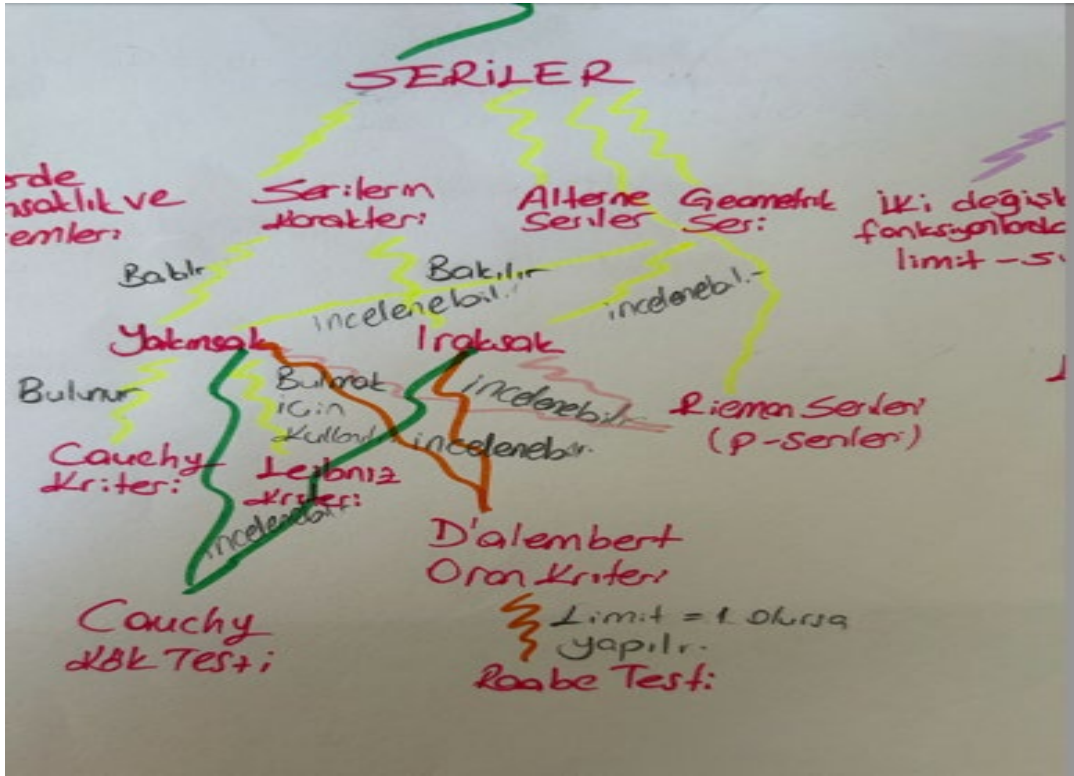 SERİLER
Serilerin
Karakteri
Alterne
Seriler
Geometrik
Seri
İki değişk
fonksiyonlarda
limit - s
Bakılır
Bakılır
incelenebil.
incelenebil.
Yakınsak
Iraksak
Bulunur
Bulmak
için
Kullanıl
incelenebilir
Rieman Serileri
(p-serileri)
incelenebilir.
Cauchy
Kriteri
Leibniz
Kriteri
incelenebilir
D'alembert
Oran Kriteri
Cauchy
Kök Testi
Limit = 1 olursa
yapılır.
Raabe Testi